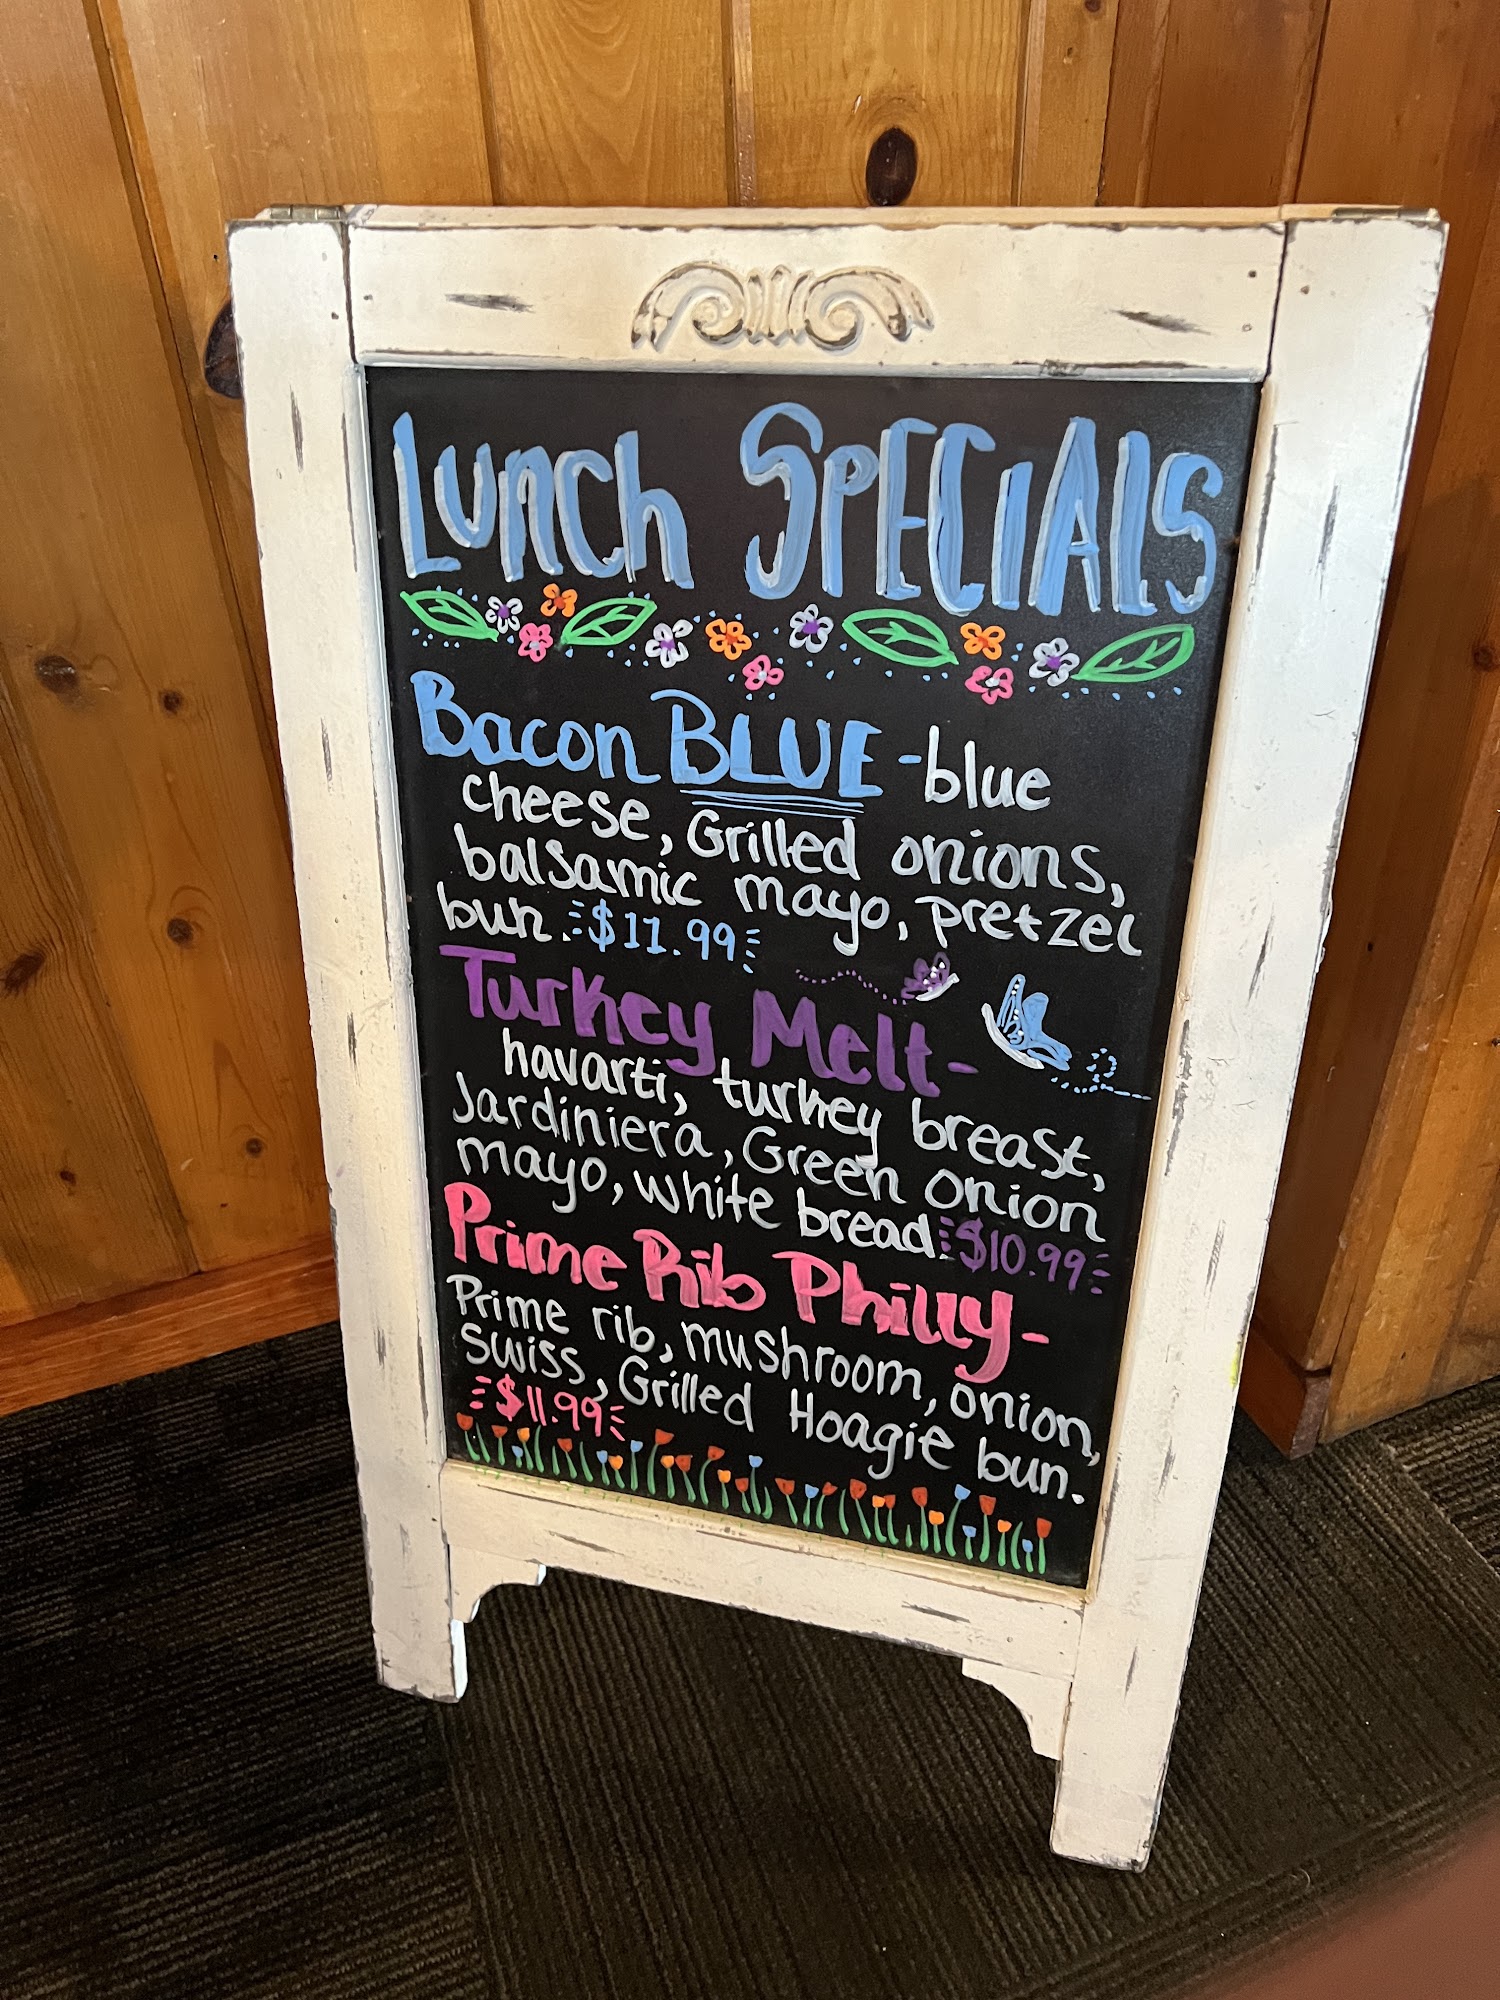 Lunch SPECIALS
Bacon BLUE - blue
cheese, Grilled onions,
balsamic mayo, pretzel
bun. $11.99
Turkey Melt-
havarti, turkey breast,
Jardiniera, Green onion
mayo, white bread. $10.99
Prime Rib Philly-
Prime rib, mushroom, onion,
swiss, Grilled Hoagie bun.
$11.99